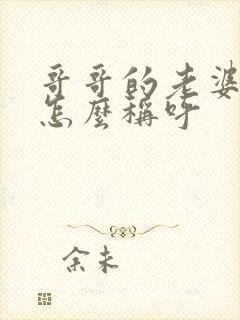 哥哥的老婆
怎麼稱呼
余未